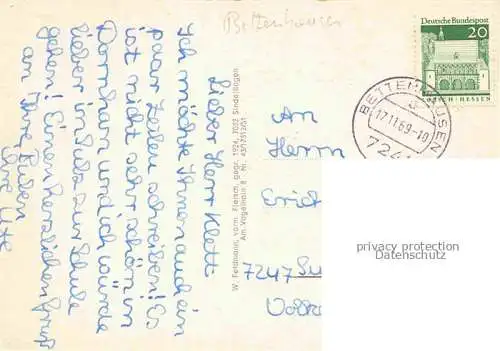 Bettenhausen
Lieber Herr Klett
Ich möchte Ihnen auch ein
paar Zeilen schreiben! Es
ist nicht sehr schön in
Dornhan und ich würde
lieber in Sulz zur Schule
gehen! Einen herzlichen Gruß
an Ihre Buben
Ihre Ute
W. Feldmann, vorm. Fleisch, gegr. 1924, 7032 Sindelfingen
Am Vogelhain 8
An
Herrn
Erich
7247 Su
Deutsche Bundespost
20
LORSCH · HESSEN
BETTENHAUSEN
17.11.69-10
724
privacy protection
Datenschutz